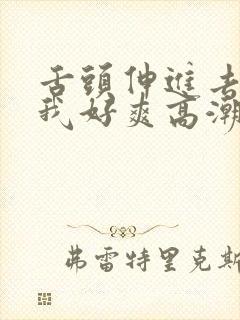 舌頭伸進去
我好爽高潮
弗雷特里克斯